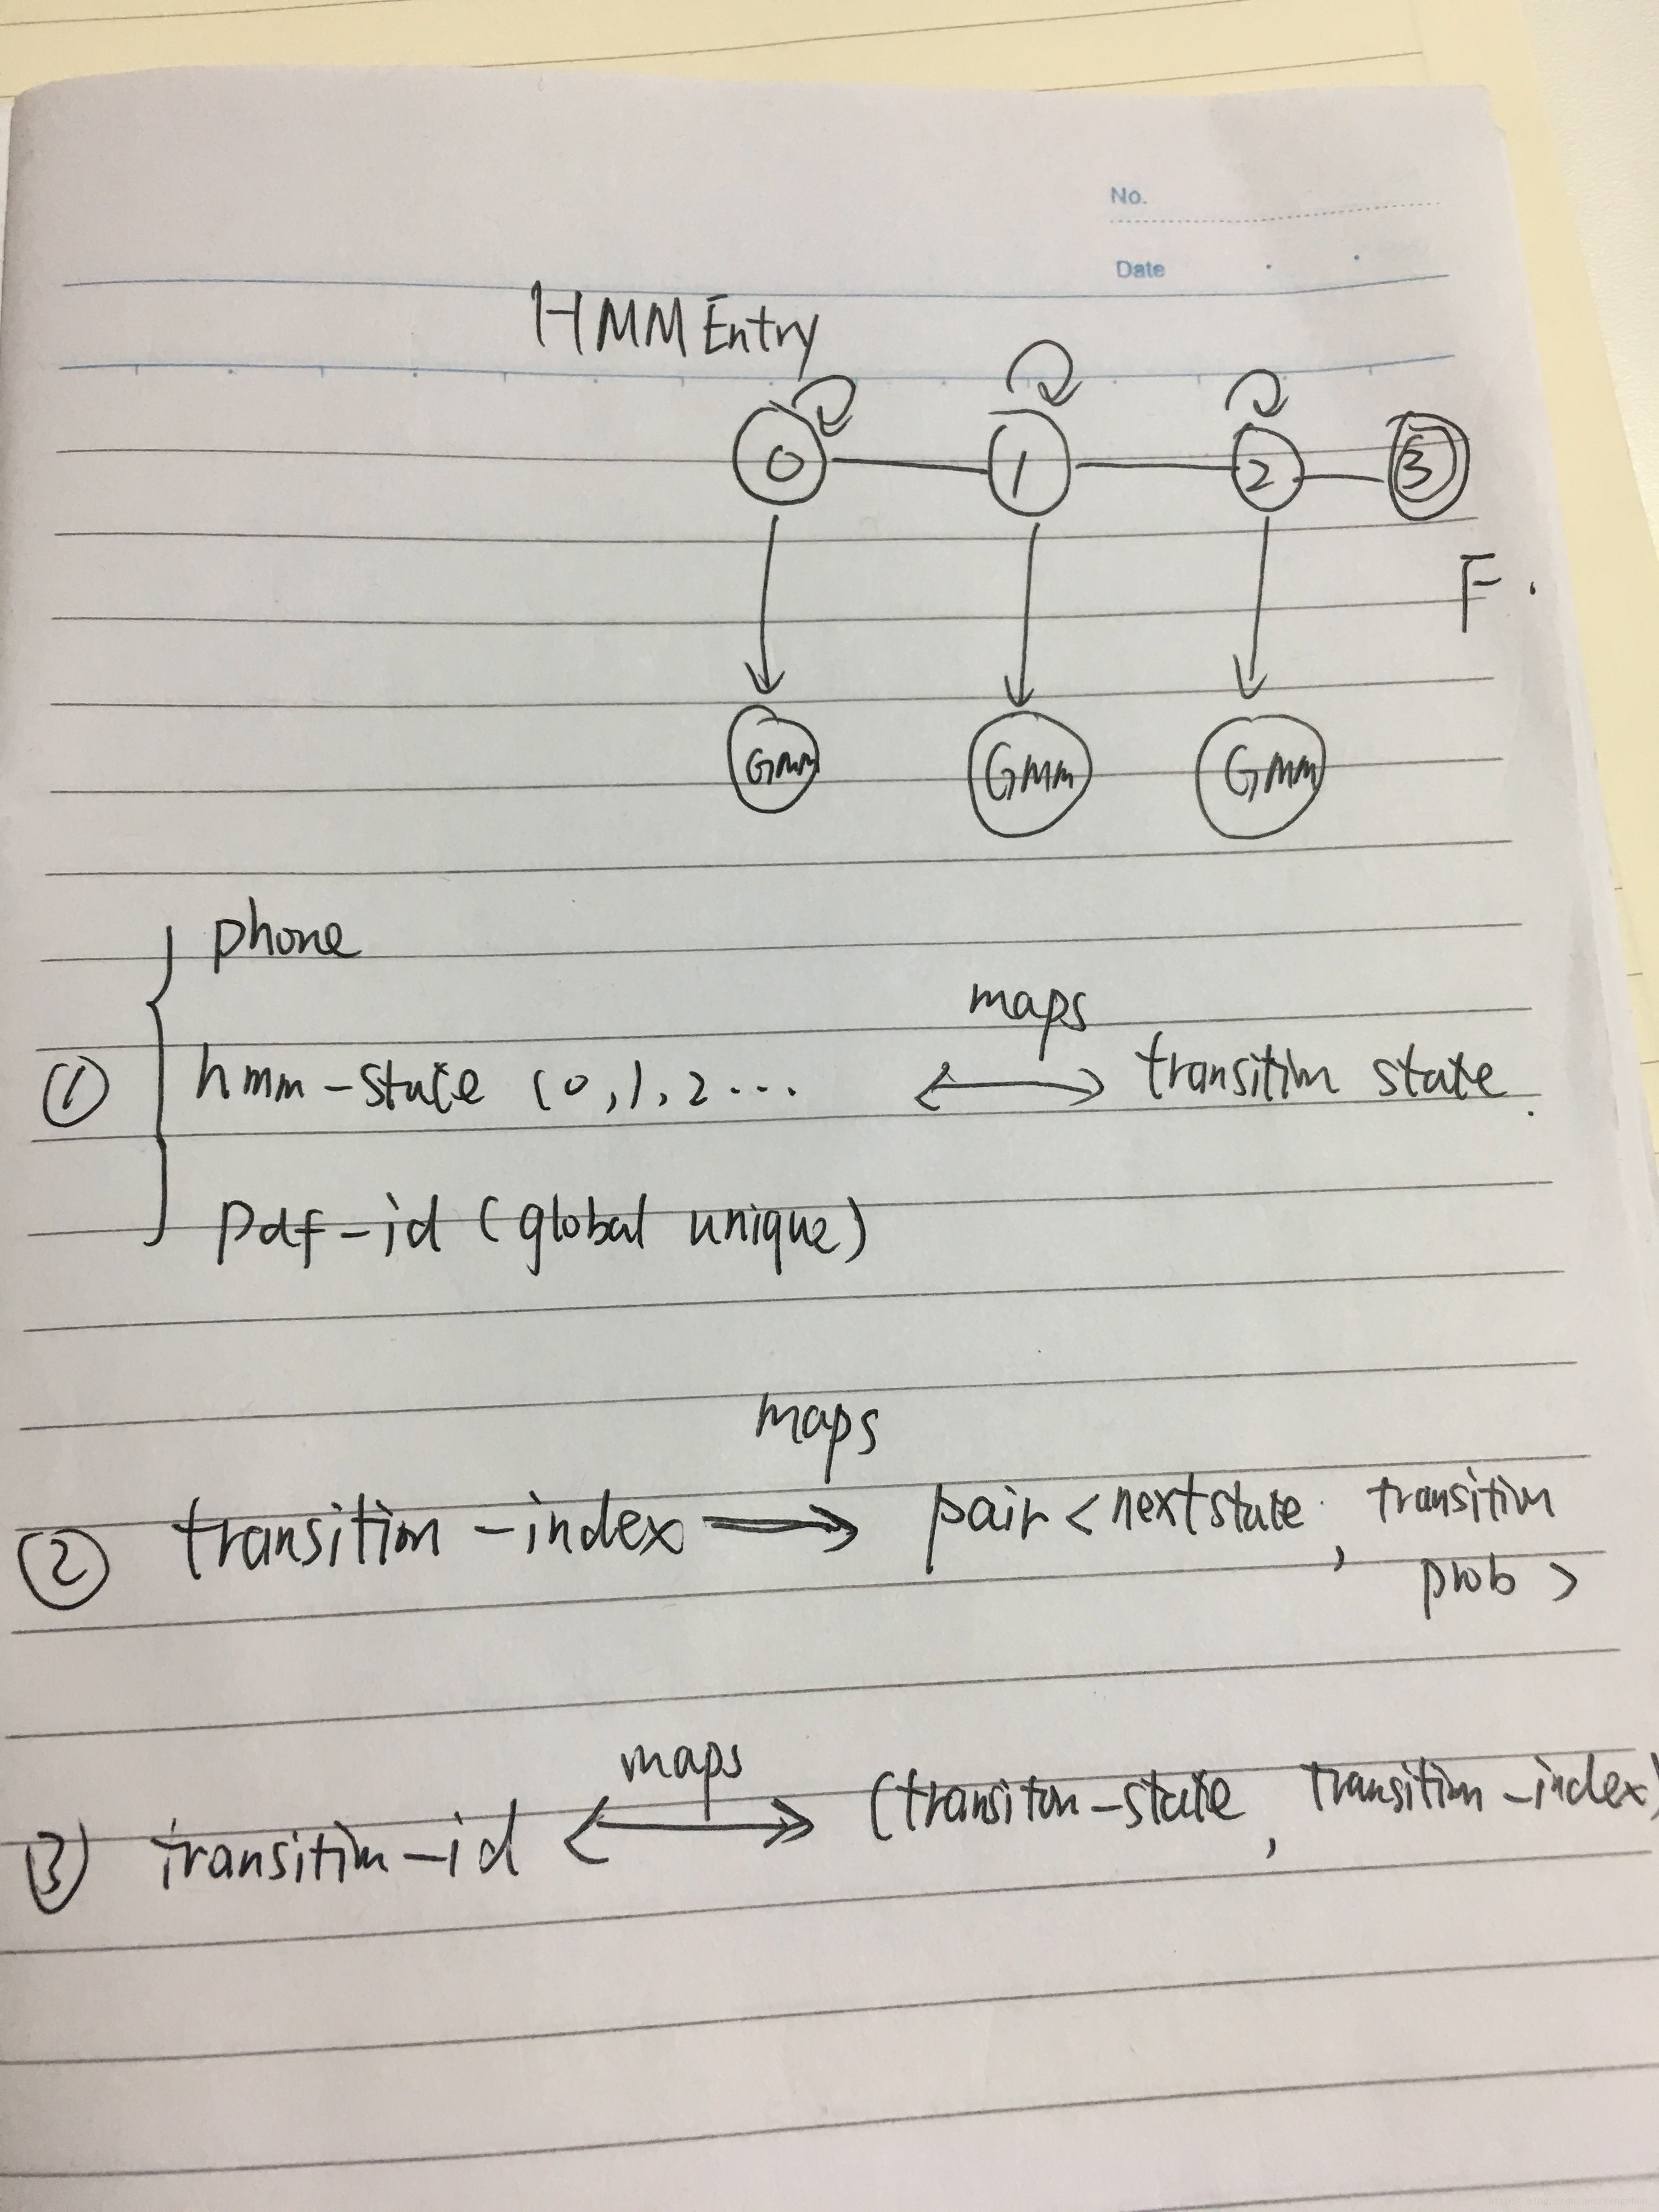 No.
Date
HMM Entry
0 1 2 3
F.
GMM GMM GMM
phone
maps
① hmm-state (0,1,2... transition state.
pdf-id (global unique)
maps
② transition-index pair <nextstate, transition
prob >
maps
③ transition-id (transiton-state, transition-index)